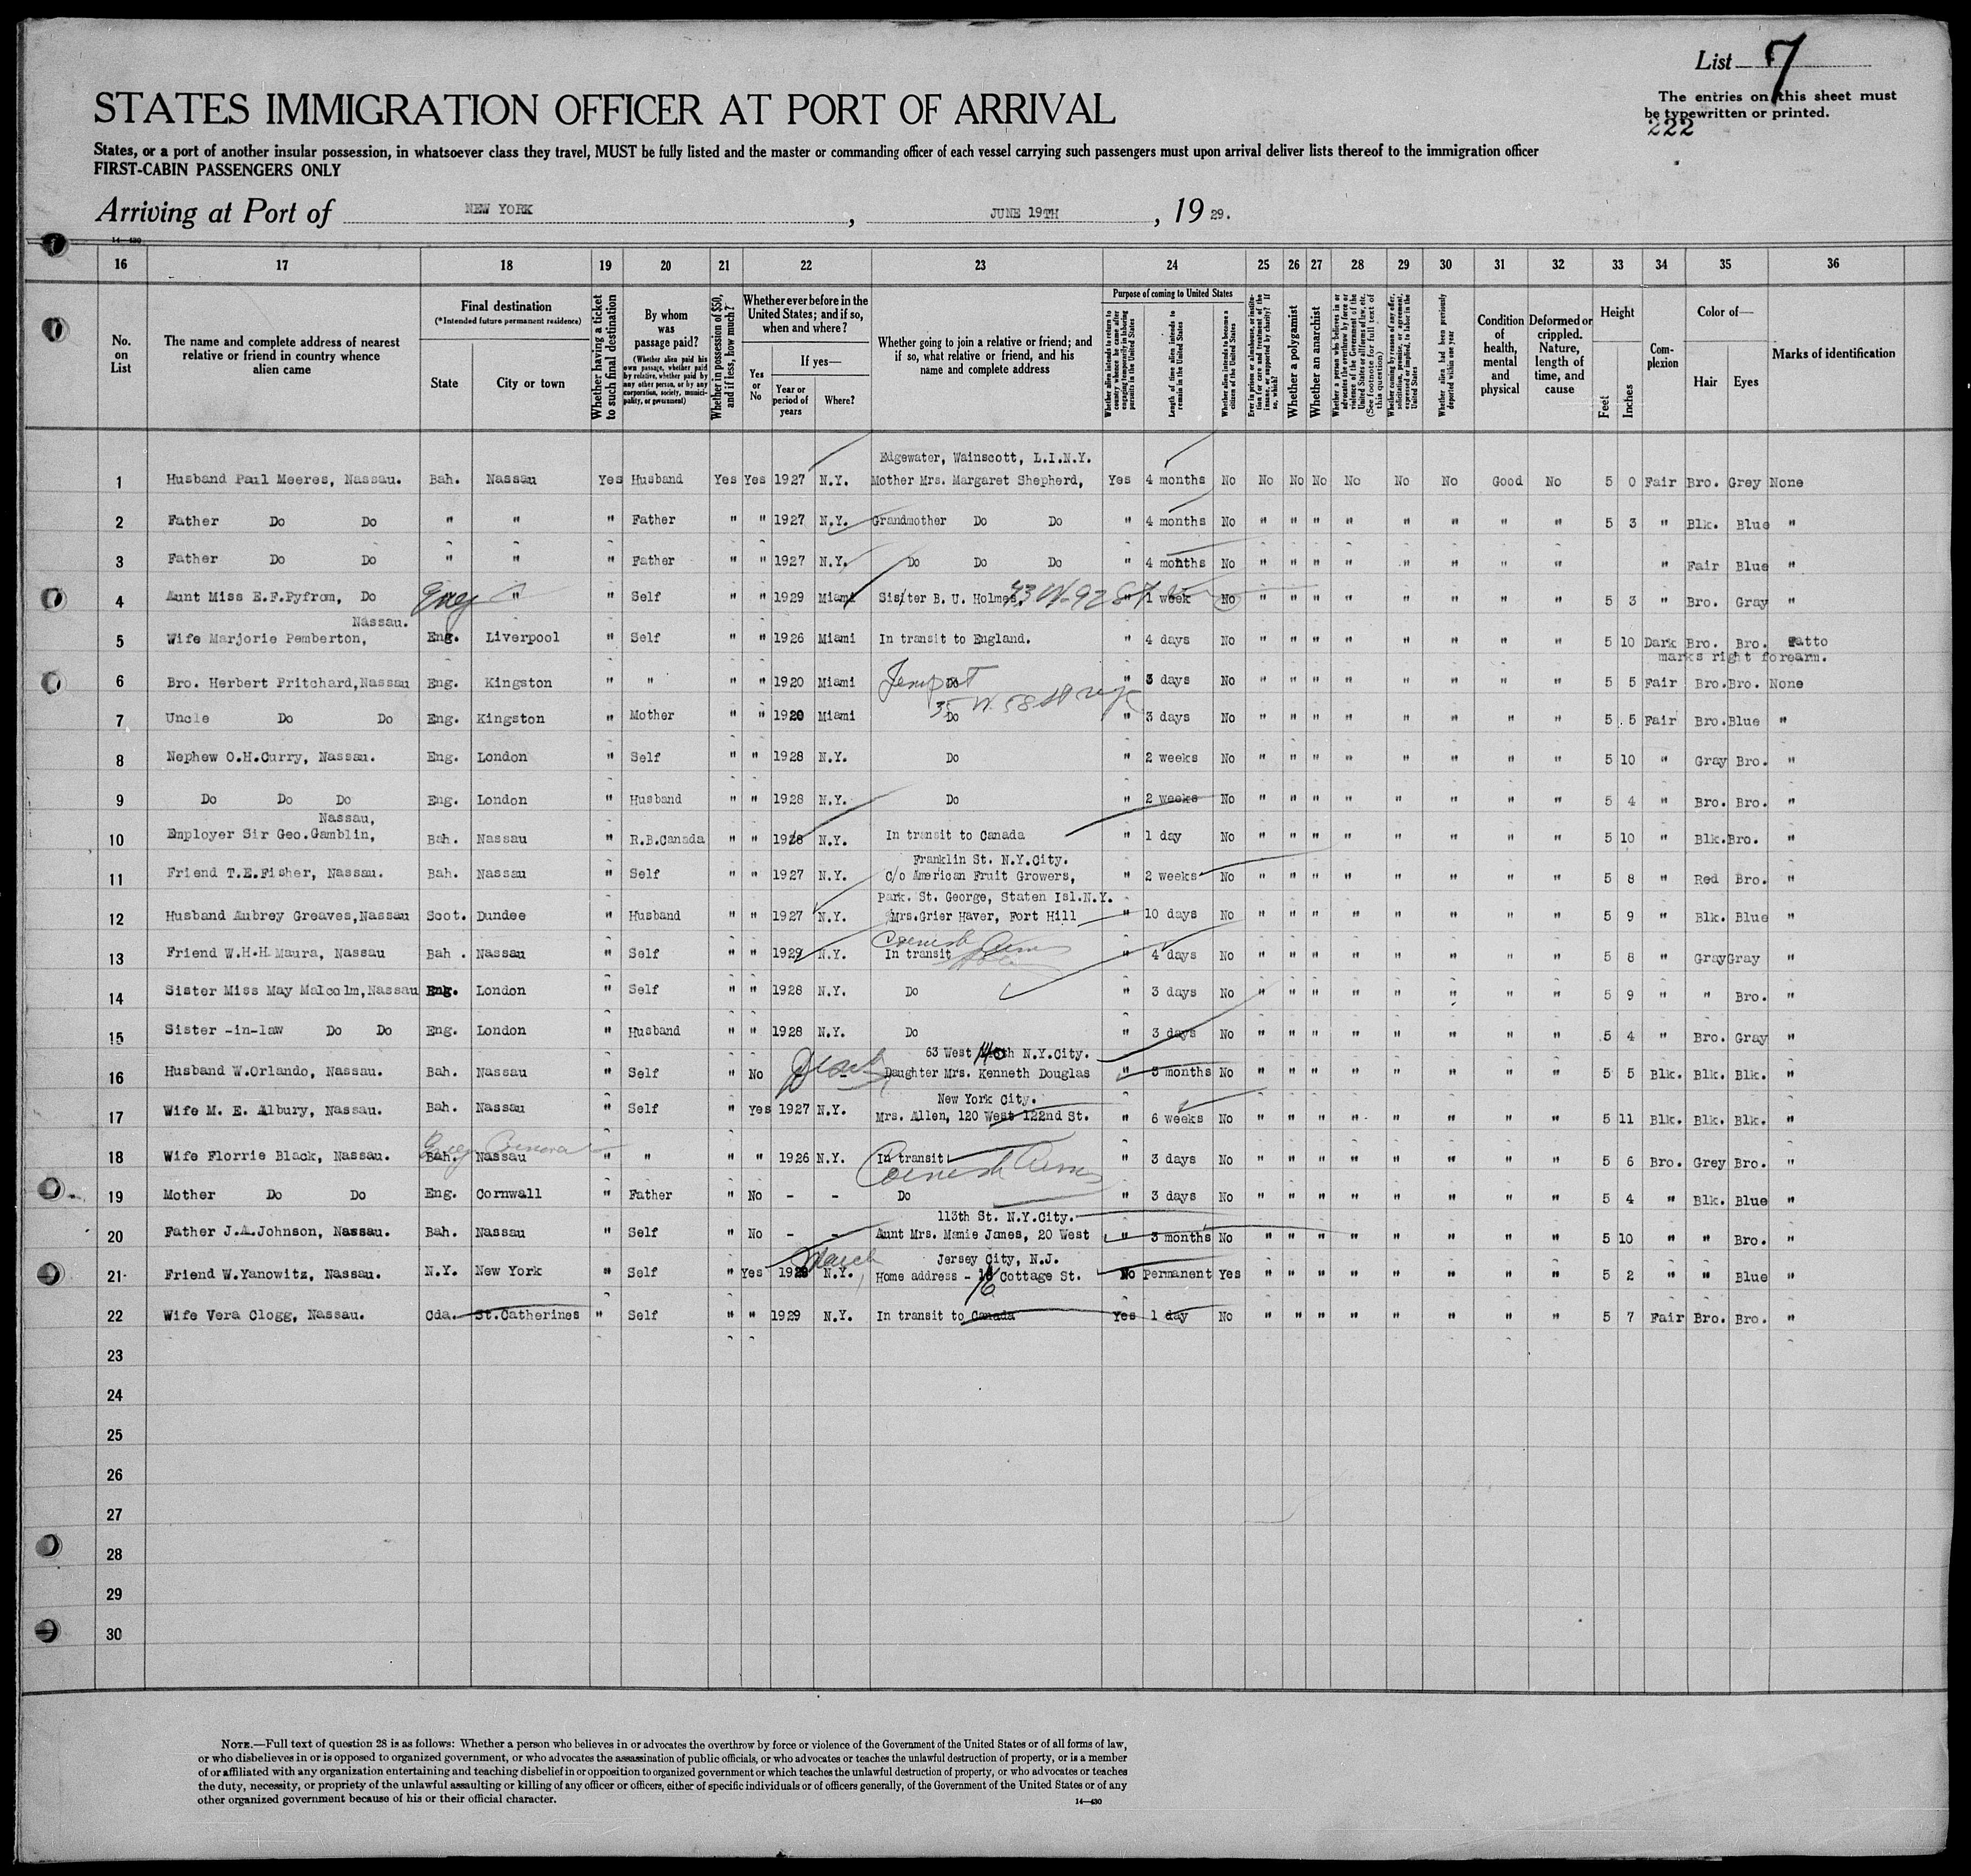 List 7
The entries on this sheet must
be typewritten or printed.
222
STATES IMMIGRATION OFFICER AT PORT OF ARRIVAL
States, or a port of another insular possession, in whatsoever class they travel, MUST be fully listed and the master or commanding officer of each vessel carrying such passengers must upon arrival deliver lists thereof to the immigration officer
FIRST-CABIN PASSENGERS ONLY
Arriving at Port of NEW YORK, JUNE 19TH, 19 29.
14—430
16 17 18 19 20 21 22 23 24 25 26 27 28 29 30 31 32 33 34 35 36
No. on List
The name and complete address of nearest relative or friend in country whence alien came
Final destination
(*Intended future permanent residence)
State
City or town
Whether having a ticket to such final destination
By whom was passage paid?
(Whether alien paid his own passage, whether paid by relative, whether paid by any other person, or by any corporation, society, municipality, or government)
Whether in possession of $50, and if less, how much?
Whether ever before in the United States; and if so, when and where?
Yes or No
If yes—
Year or period of years
Where?
Whether going to join a relative or friend; and if so, what relative or friend, and his name and complete address
Purpose of coming to United States
Whether alien intends to return to country whence he came after engaging temporarily in laboring pursuits in the United States
Length of time alien intends to remain in the United States
Whether alien intends to become a citizen of the United States
Ever in prison or almshouse, or institution for care and treatment of the insane, or supported by charity? If so, which?
Whether a polygamist
Whether an anarchist
Whether a person who believes in or advocates the overthrow by force or violence of the Government of the United States or all forms of law, etc. (See footnote for full text of this question)
Whether coming by reason of any offer, solicitation, promise, or agreement, expressed or implied, to labor in the United States
Whether alien had been previously deported within one year
Condition of health, mental and physical
Deformed or crippled. Nature, length of time, and cause
Height
Feet
Inches
Complexion
Color of—
Hair
Eyes
Marks of identification
Edgewater, Wainscott, L.I.N.Y.
1 Husband Paul Meeres, Nassau. Bah. Nassau Yes Husband Yes Yes 1927 N.Y. Mother Mrs. Margaret Shepherd, Yes 4 months No No No No No No No Good No 5 0 Fair Bro. Grey None
2 Father Do Do " " " Father " " 1927 N.Y. Grandmother Do Do " 4 months No " " " " " " " " 5 3 " Blk. Blue "
3 Father Do Do " " " Father " " 1927 N.Y. Do Do Do " 4 months No " " " " " " " " " Fair Blue "
4 Aunt Miss E.F.Pyfrom, Do Eng " " Self " " 1929 Miami Sister B. U. Holmes. 43 W-92 St " 1 week No " " " " " " " " 5 3 " Bro. Gray "
Nassau.
5 Wife Marjorie Pemberton, Eng. Liverpool " Self " " 1926 Miami In transit to England. " 4 days No " " " " " " " " 5 10 Dark Bro. Bro. Tatto
marks right forearm.
6 Bro. Herbert Pritchard,Nassau Eng. Kingston " " " " 1920 Miami Do " 3 days No " " " " " " " " 5 5 Fair Bro.Bro. None
35 W. 58 St
7 Uncle Do Do Eng. Kingston " Mother " " 1920 Miami Do " 3 days No " " " " " " " " 5 5 Fair Bro.Blue "
8 Nephew O.H.Curry, Nassau. Eng. London " Self " " 1928 N.Y. Do " 2 weeks No " " " " " " " " 5 10 " Gray Bro. "
9 Do Do Do Eng. London " Husband " " 1928 N.Y. Do " 2 weeks No " " " " " " " " 5 4 " Bro. Bro. "
Nassau,
10 Employer Sir Geo.Gamblin, Bah. Nassau " R.B.Canada " " 1928 N.Y. In transit to Canada " 1 day No " " " " " " " " 5 10 " Blk.Bro. "
Franklin St. N.Y.City.
11 Friend T.E.Fisher, Nassau. Bah. Nassau " Self " " 1927 N.Y. C/o American Fruit Growers, " 2 weeks No " " " " " " " " 5 8 " Red Bro. "
Park. St. George, Staten Isl.N.Y.
12 Husband Aubrey Greaves,Nassau Scot. Dundee " Husband " " 1927 N.Y. Mrs.Grier Haver, Fort Hill " 10 days No " " " " " " " " 5 9 " Blk. Blue "
13 Friend W.H.H.Maura, Nassau Bah . Nassau " Self " " 1929 N.Y. In transit " 4 days No " " " " " " " " 5 8 " GrayGray "
14 Sister Miss May Malcolm,Nassau Eng. London " Self " " 1928 N.Y. Do " 3 days No " " " " " " " " 5 9 " " Bro. "
15 Sister -in-law Do Do Eng. London " Husband " " 1928 N.Y. Do " 3 days No " " " " " " " " 5 4 " Bro. Gray "
63 West 140th N.Y.City.
16 Husband W.Orlando, Nassau. Bah. Nassau " Self " No - - Daughter Mrs. Kenneth Douglas " 3 months No " " " " " " " " 5 5 Blk. Blk. Blk. "
New York City.
17 Wife M. E. Albury, Nassau. Bah. Nassau " Self " Yes 1927 N.Y. Mrs. Allen, 120 West 122nd St. " 6 weeks No " " " " " " " " 5 11 Blk. Blk. Blk. "
18 Wife Florrie Black, Nassau. Bah. Nassau " " " " 1926 N.Y. In transit " 3 days No " " " " " " " " 5 6 Bro. Grey Bro. "
19 Mother Do Do Eng. Cornwall " Father " No - - Do " 3 days No " " " " " " " " 5 4 " Blk. Blue "
113th St. N.Y.City.
20 Father J.A.Johnson, Nassau. Bah. Nassau " Self " No - - Aunt Mrs. Mamie James, 20 West " 3 months No " " " " " " " " 5 10 " " Bro. "
March
Jersey City, N.J.
21 Friend W.Yanowitz, Nassau. N.Y. New York " Self " Yes 1928 N.Y. Home address - 16 Cottage St. No Permanent Yes " " " " " " " " 5 2 " " Blue "
22 Wife Vera Clogg, Nassau. Cda. St.Catherines " Self " " 1929 N.Y. In transit to Canada Yes 1 day No " " " " " " " " 5 7 Fair Bro. Bro. "
23
24
25
26
27
28
29
30
NOTE.—Full text of question 28 is as follows: Whether a person who believes in or advocates the overthrow by force or violence of the Government of the United States or of all forms of law,
or who disbelieves in or is opposed to organized government, or who advocates the assassination of public officials, or who advocates or teaches the unlawful destruction of property, or is a member
of or affiliated with any organization entertaining and teaching disbelief in or opposition to organized government or which teaches the unlawful destruction of property, or who advocates or teaches
the duty, necessity, or propriety of the unlawful assaulting or killing of any officer or officers, either of specific individuals or of officers generally, of the Government of the United States or of any
other organized government because of his or their official character.
14—430